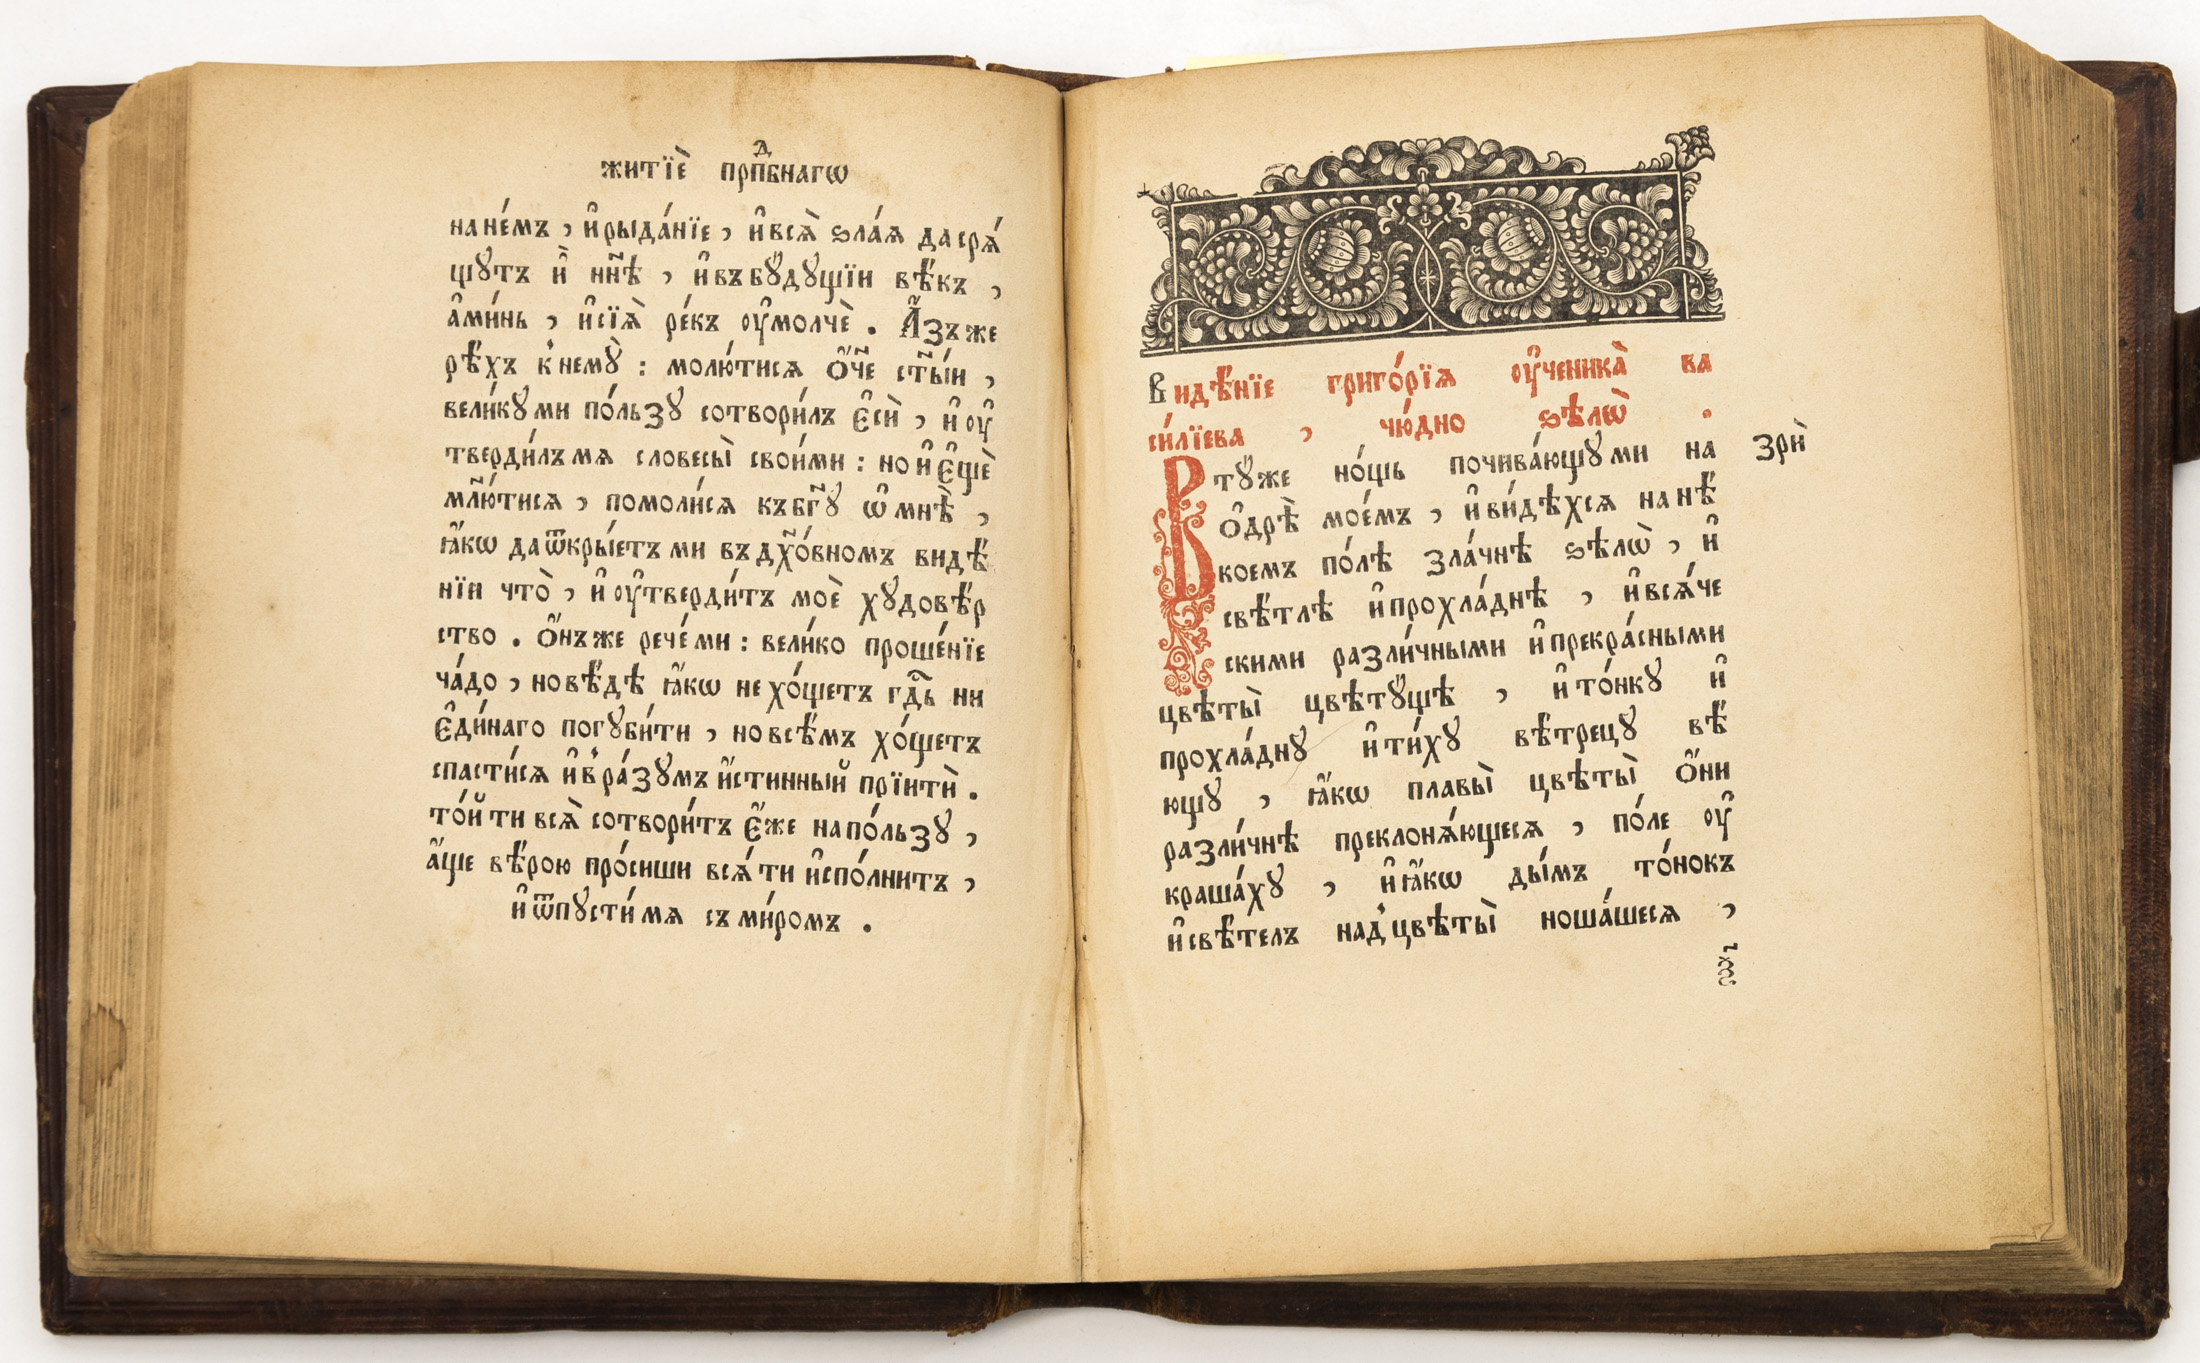 житїѐ прпⷣбнагѡ
на не́мъ , и҆ рыда́нїе , и҆ всѧ̀ ѕла́ѧ да срѧ́
щꙋтъ и҆̀ нн҃ѣ , и҆ въ бꙋ́дꙋщїи вѣ́къ ,
а҆ми́нь , и҆ сїѧ̀ ре́къ ᲂу҆молчѐ . А҆́зъ же
рѣ́хъ к немꙋ̀ : молю́тисѧ ѻ҆́ч҃е ст҃ы́и ,
вели́кꙋ ми по́льзꙋ сотвори́лъ є҆сѝ , и҆ ᲂу҆
тверди́лъ мѧ словесы̀ свои́ми : но и҆ є҆щѐ
мл҃ю́тисѧ , помоли́сѧ къ бг҃ꙋ ѡ҆ мнѣ̀ ,
ꙗ҆́кѡ да ѿкры́етъ ми въ дх҃о́вномъ видѣ́
нїи что̀ , и҆ ᲂу҆тверди́тъ моѐ хꙋдовѣ́р
ство . Ѻ҆́нъ же рече́ ми : вели́ко проше́нїе
ча́до , но вѣ́дѣ ꙗ҆́кѡ не хо́щетъ гдⷭ҇ь ни
є҆ди́наго погꙋби́ти , но всѣ́мъ хо́щетъ
спасти́сѧ и҆ в ра́зꙋмъ и҆́стинный прїитѝ .
то́й ти всѧ̀ сотвори́тъ є҆́же на по́льзꙋ ,
а҆́ще вѣ́рою про́сиши всѧ́ ти и҆спо́лнитъ ,
и҆ ѿпꙋсти́ мѧ съ ми́ромъ .
Видѣ́нїе григо́рїѧ ᲂу҆ченика̀ ва
си́лїева , чю́дно ѕѣлѡ̀ .
В тꙋ́же но́щь почива́ющꙋ ми на
зрѝ
ѻ҆дрѣ̀ мое́мъ , и҆ ви́дѣхсѧ на нѣ́
коемъ по́лѣ зла́чнѣ ѕѣлѡ̀ , и҆
свѣ́тлѣ и҆ прохла́днѣ , и҆ всѧ́че
скими разли́чными и҆ прекра́сными
цвѣты̀ цвѣтꙋ́щѣ , и҆ то́нкꙋ и҆
прохла́днꙋ и҆ ти́хꙋ вѣ́трецꙋ вѣ́
ющꙋ , ꙗ҆́кѡ плавы̀ цвѣты̀ ѻ҆́ни
разли́чнѣ преклонѧ́ющесѧ , по́ле ᲂу҆
краша́хꙋ , и҆ ꙗ҆́кѡ ды́мъ то́нокъ
и҆ свѣ́телъ над цвѣты̀ ноша́шесѧ ,